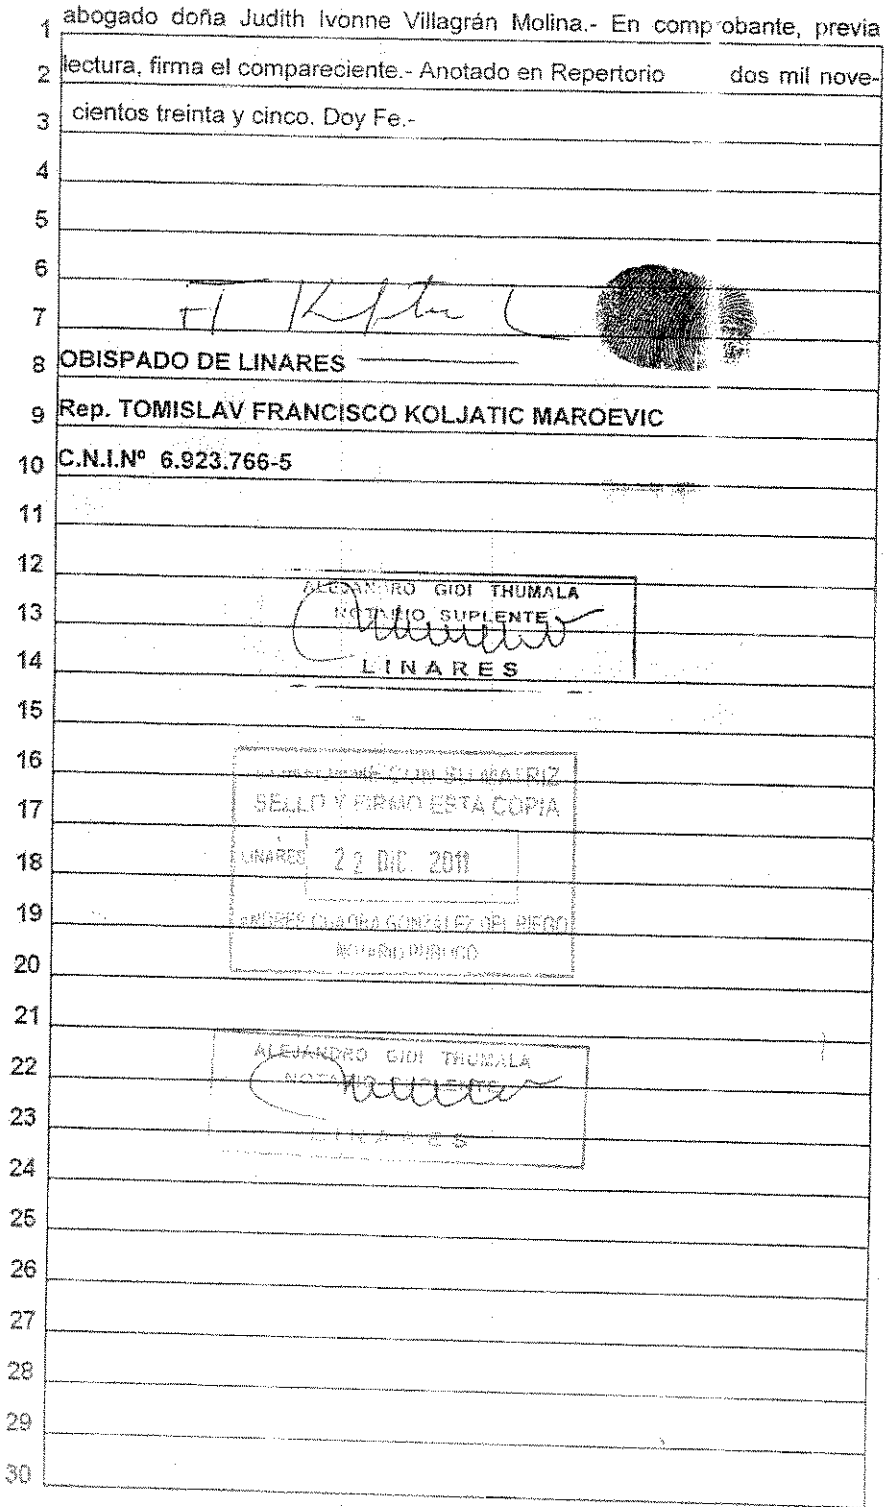 1 abogado doña Judith Ivonne Villagrán Molina.- En comprobante, previa
2 lectura, firma el compareciente.- Anotado en Repertorio dos mil nove-
3 cientos treinta y cinco. Doy Fe.-
4
5
6
7
8 OBISPADO DE LINARES
9 Rep. TOMISLAV FRANCISCO KOLJATIC MAROEVIC
10 C.N.I.Nº 6.923.766-5
11
12
ALEJANDRO GIDI THUMALA
13 NOTARIO SUPLENTE
14 LINARES
15
16 CONFORME CON SU MATRIZ
17 SELLO Y FIRMO ESTA COPIA
18 LINARES 22 DIC. 2011
19 ANDRES CUADRA GONZALEZ DEL RIEGO
20 NOTARIO PUBLICO
21
ALEJANDRO GIDI THUMALA
22 NOTARIO SUPLENTE
23 LINARES
24
25
26
27
28
29
30